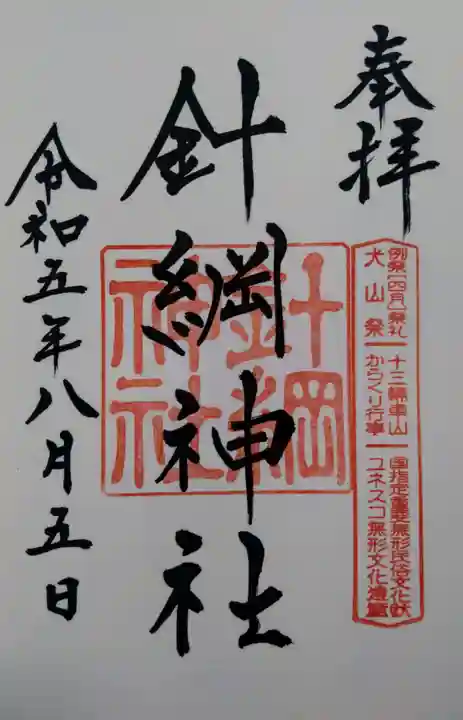 奉拝
例祭[四月]祭礼
犬山祭
十三輌車山
からくり行事
国指定重要無形民俗文化財
ユネスコ無形文化遺産
針綱神社
針綱
神社
令和五年八月五日